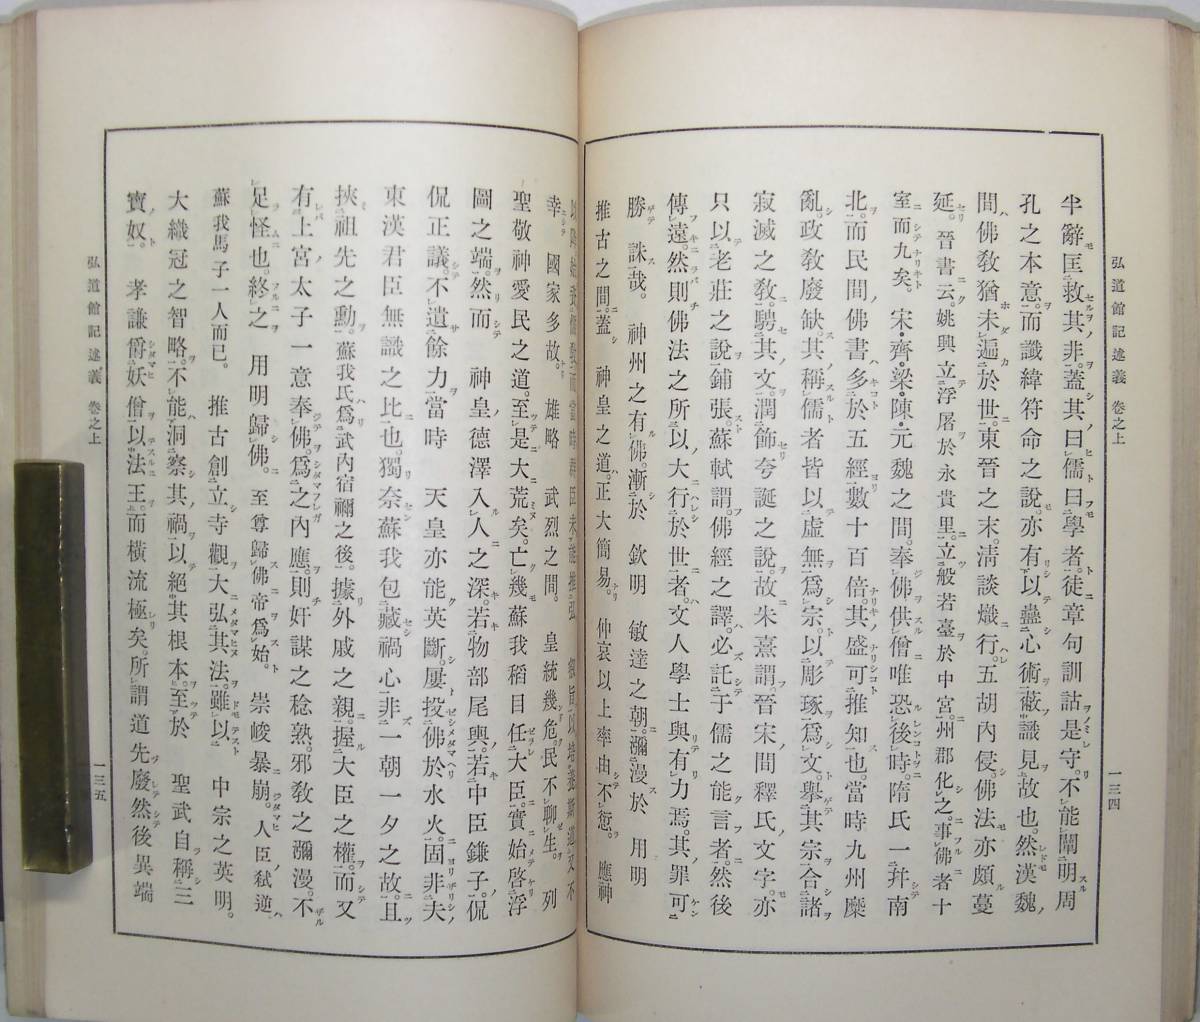 弘道館記述義 卷之上
一三四
半辭匡救其非。蓋其曰儒曰學者。徒章句訓詁是守。不能闡明周
孔之本意。而讖緯符命之説。亦有以蠱心術蔽識見故也。然漢魏
間佛敎猶未遍於世。東晉之末。淸談熾行。五胡內侵。佛法亦頗蔓
延。晉書云姚興立浮屠於永貴里。立般若臺於中宮。州郡化之。事佛者十
室而九矣。宋・齊・梁・陳・元魏之間。奉佛供僧唯恐後時。隋氏一幷南
北。而民間佛書多於五經數十百倍。其盛可推知也。當時九州糜
亂。政敎廢缺。其稱儒者皆以虛無爲宗。以彫琢爲文。擧其宗合諸
寂滅之敎。騁其文。潤飾夸誕之說。故朱熹謂。晉宋間釋氏文字。亦
只以老莊之說鋪張。蘇軾謂。佛經之譯。必託于儒之能言者。然後
傳遠。然則佛法之所以大行於世者。文人學士與有力焉。其罪可
勝誅哉。神州之有佛。漸於 欽明 敏達之朝。瀰漫於 用明
推古之間。蓋 神皇之道。正大簡易。仲哀以上率由不愆。應神
幸 國家多故。雄略 武烈之間。皇統幾危。民不聊生。列
聖敬神愛民之道。至是大荒矣。亡幾蘇我稻目任大臣。實始啓浮
圖之端。然而 神皇德澤入人之深。若物部尾輿。若中臣鎌子。侃
侃正議。不遺餘力。當時 天皇亦能英斷。屢投佛於水火。固非夫
東漢君臣無識之比也。獨奈蘇我包藏禍心。非一朝一夕之故。且
挾祖先之勳。蘇我氏爲武內宿禰之後。據外戚之親。握大臣之權。而又
有上宮太子一意奉佛。爲之內應。則奸謀之稔熟。邪敎之瀰漫。不
足怪也。終之 用明歸佛。至尊歸佛帝爲始。崇峻暴崩。人臣弑逆
蘇我馬子一人而已。推古創立寺觀。大弘其法。雖以 中宗之英明。
大織冠之智略。不能洞察其禍以絕其根本。至於 聖武自稱三
寶奴。孝謙爵妖僧以法王。而橫流極矣。所謂道先廢然後異端
弘道館記述義 卷之上
一三五